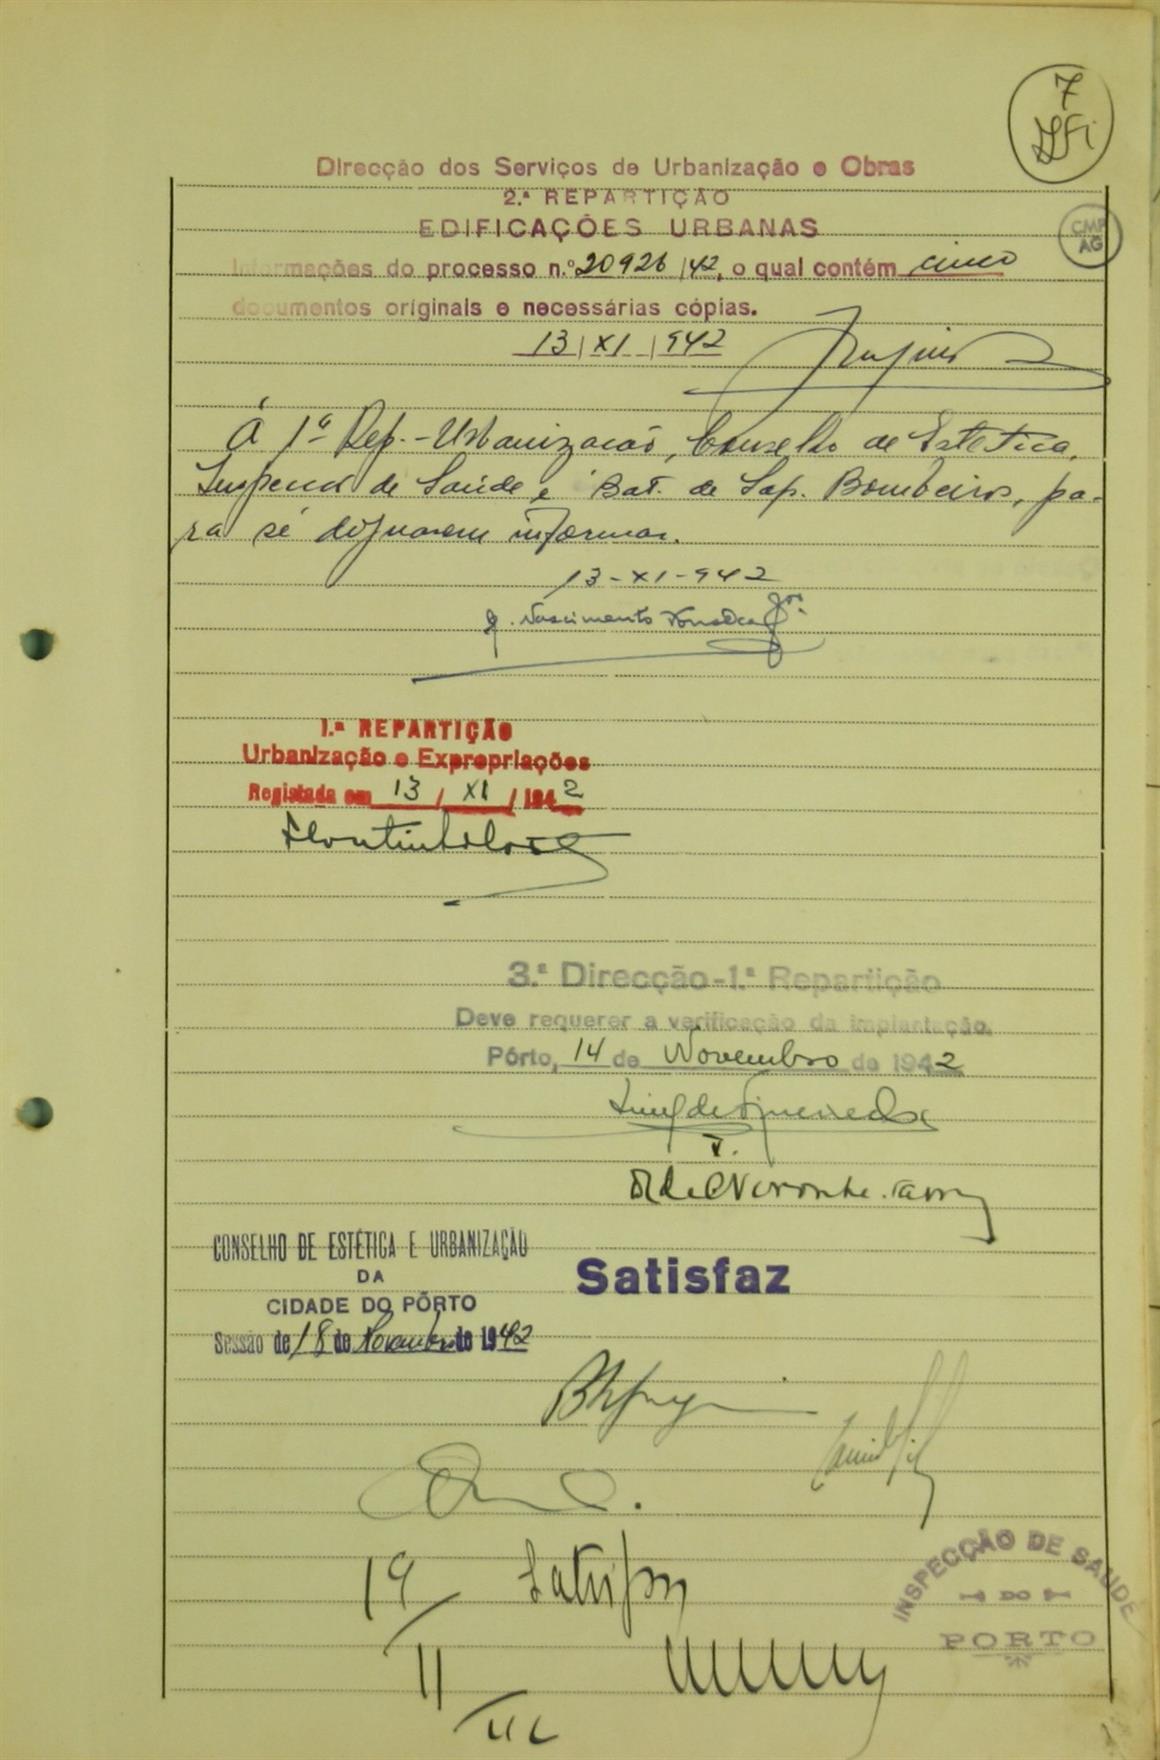 7
Direcção dos Serviços de Urbanização e Obras
2.ª REPARTIÇÃO
EDIFICAÇÕES URBANAS
CMP
AG
Informações do processo n.º 20926/42, o qual contém cinco
documentos originais e necessárias cópias.
13/XI/942
Á 1ª Rep. - Urbanização, Conselho de Estética,
Inspecção de Saúde e Bat. de Sap. Bombeiros, pa-
ra se dignarem informar.
13-XI-942
Nascimento Fonseca
1.ª REPARTIÇÃO
Urbanização e Expropriações
Registada em 13/XI/1942
3.ª Direcção-1.ª Repartição
Deve requerer a verificação da implantação.
Pôrto, 14 de Novembro de 1942
Luiz de Figueiredo
V.
CONSELHO DE ESTÉTICA E URBANIZAÇÃO
DA
CIDADE DO PÔRTO
Satisfaz
Sessão de 18 de Novembro de 1942
19 Satisfaz
INSPECÇÃO DE SAUDE
DO
PORTO
11